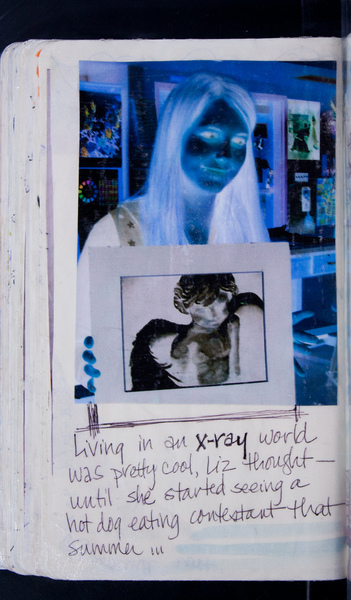 Living in an x-ray world
was pretty cool, Liz thought —
until she started seeing a
hot dog eating contestant that
summer ...